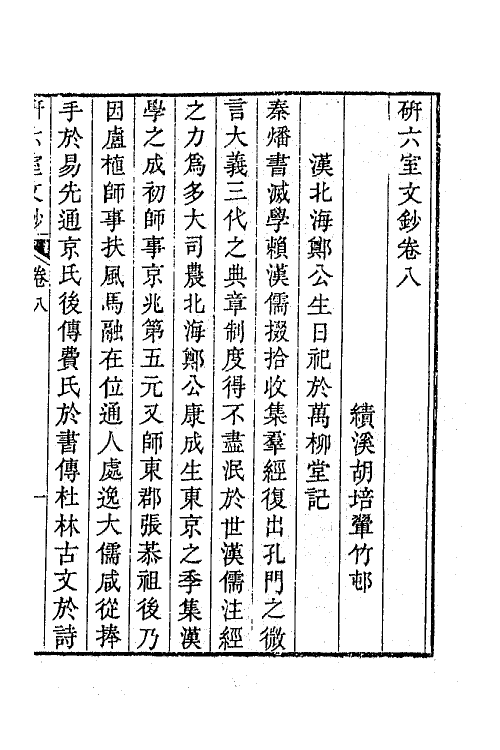 研六室文鈔卷八
績溪胡培翬竹邨
漢北海鄭公生日祀於萬柳堂記
秦燔書滅學賴漢儒掇拾收集羣經復出孔門之微
言大義三代之典章制度得不盡泯於世漢儒注經
之力爲多大司農北海鄭公康成生東京之季集漢
學之成初師事京兆第五元又師東郡張恭祖後乃
因盧植師事扶風馬融在位通人處逸大儒咸從捧
手於易先通京氏後傳費氏於書傳杜林古文於詩
研六室文鈔
卷八
一